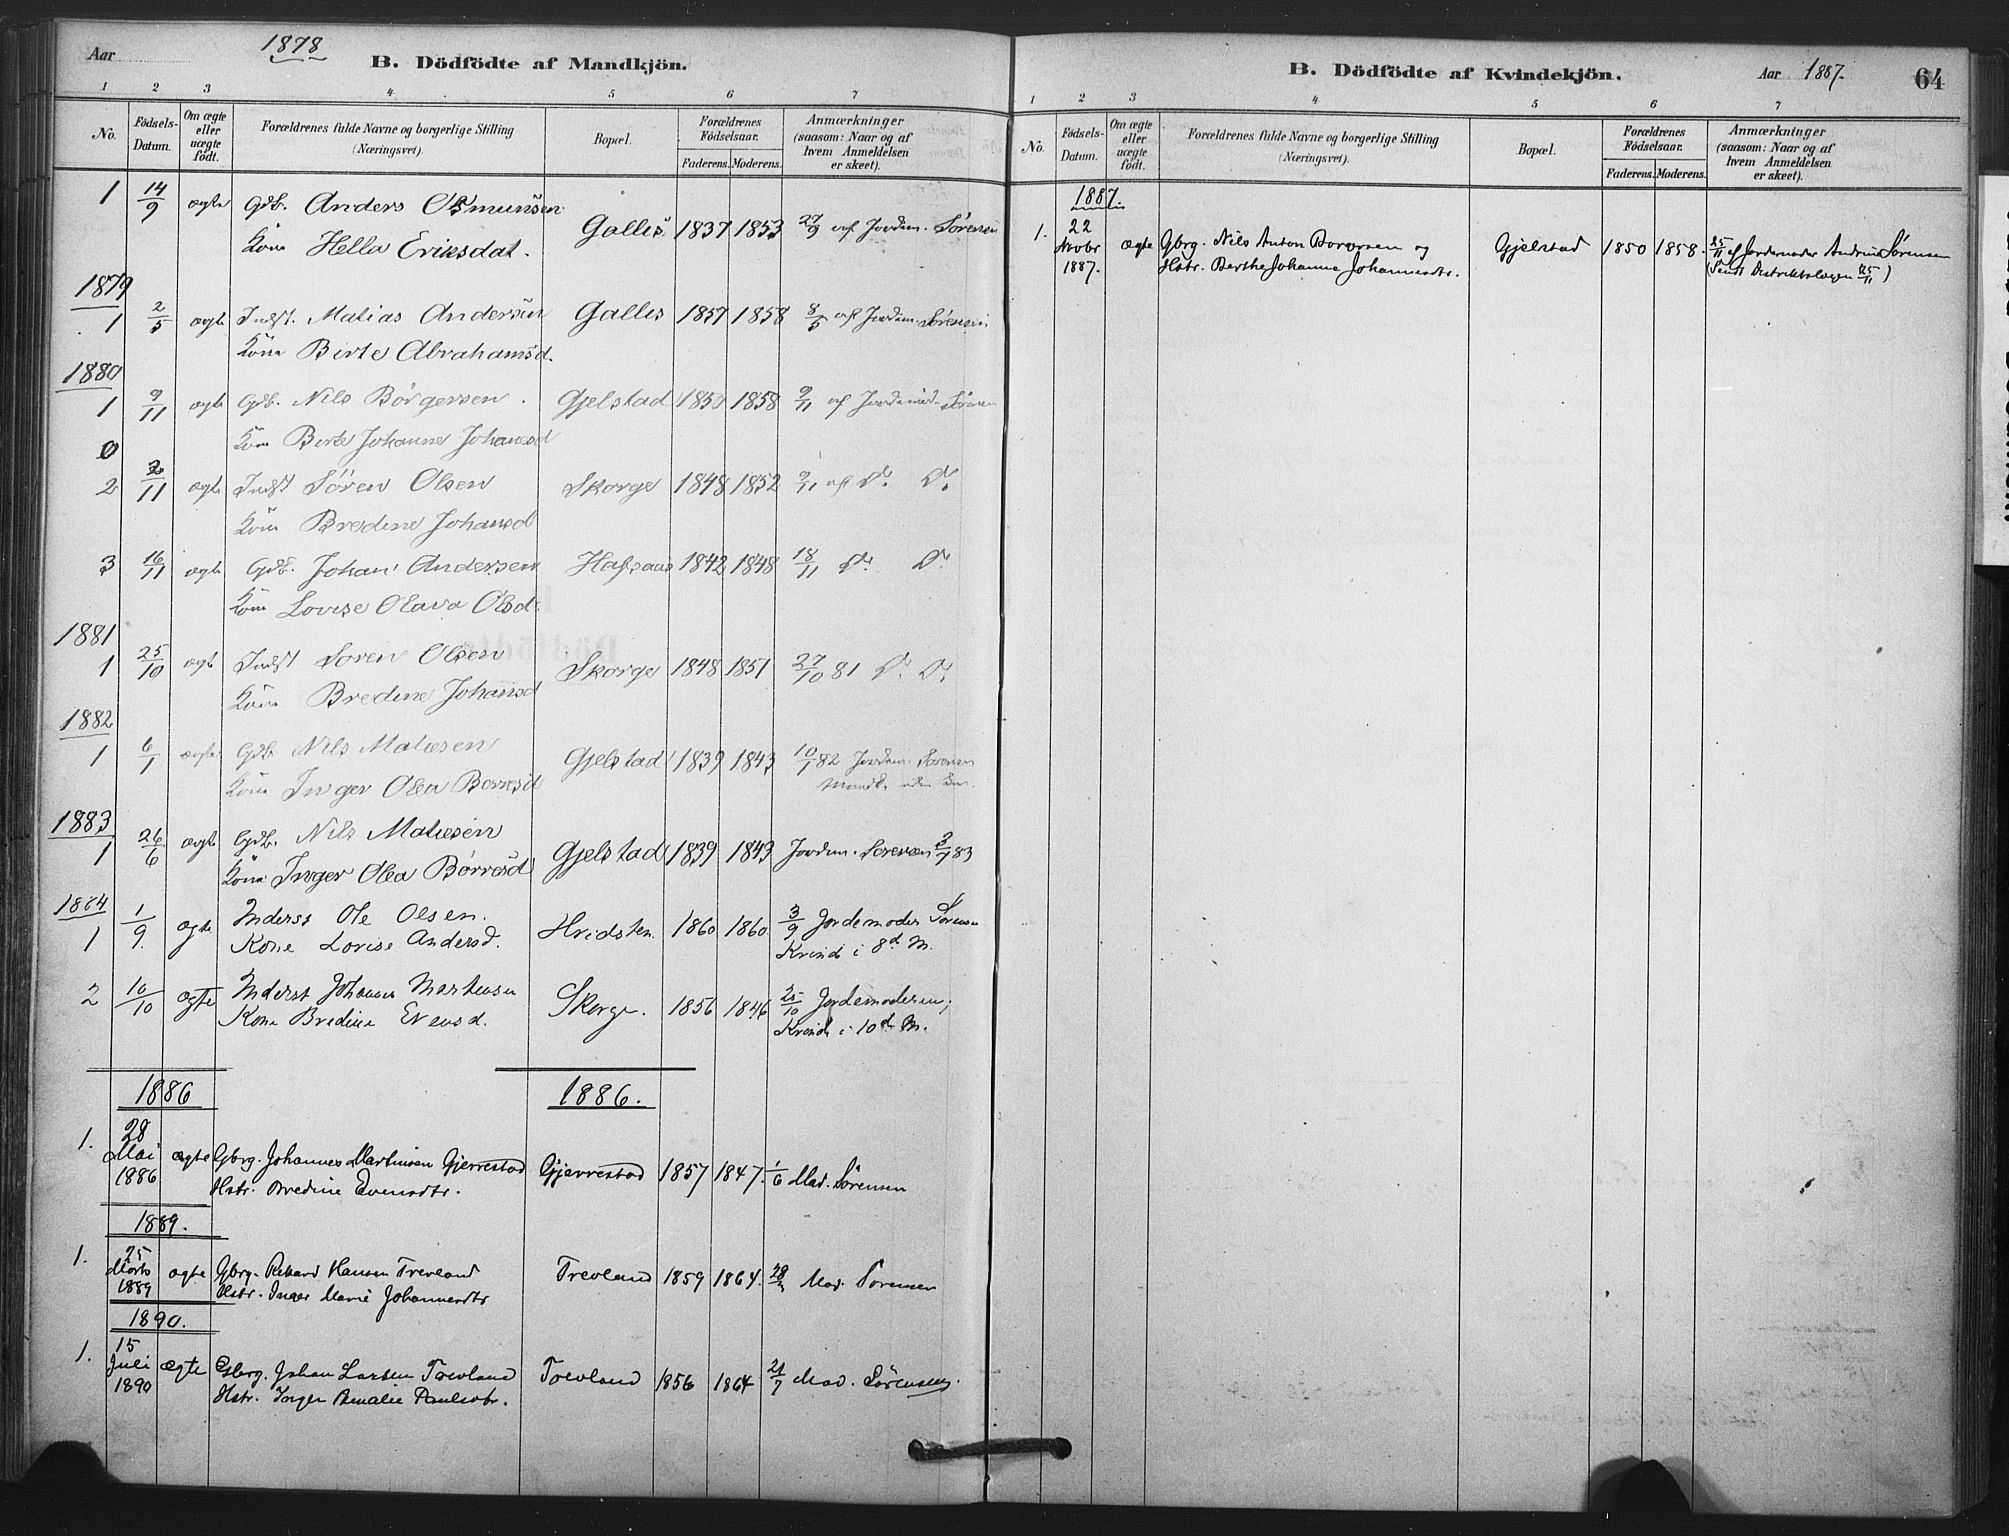 Aar 1878
B. Dödfödte af Mandkjön.
1 2 3 4 5 6 7
No. Födsels-Datum. Om ægte eller uægte födt. Forældrenes fulde Navne og borgerlige Stilling (Næringsvei). Bopæl. Forældrenes Födselsaar. Faderens. Moderens. Anmærkninger (saasom: Naar og af hvem Anmeldelsen er skeet).
1 14/9 ægte Gdb. Anders Gallis 1837 1853 27/9 af Jordm. Sörensen
Kone Hella Eriksdat.
1879
1 2/5 ægte Indst. Matias Andersen Gallis 1857 1858 8/5 af Jordm. Sörensen
Kone Birte Abrahamsd.
1880
1 9/11 ægte Gdb. Nils Börgersen. Gjelstad 1850 1858 9/11 af Jordemod. Sörensen
Kone Birte Johanne Johansd
0
2 /11 ægte Indst Sören Olsen Skorge 1848 1852 9/11 af Do. Do.
Kone Bredine Johansd
3 16/11 ægte Gdb. Johan Andersen 1842 1848 18/11 Do. Do.
Kone Lovise Olava Olsd.
1881
1 25/10 ægte Indst Soren Olsen Skorge 1848 1851 27/10 81 Do. Do.
Kone Bredine Johansd
1882
1 6/1 ægte Gdb Nils Matiesen Gjelstad 1839 1843 10/1 82 Jordm. Sorensen
Kone Inger Olea Borresd
1883
1 26/6 ægte Gdb. Nils Matiesen Gjelstad 1839 1843 Jordm. Sorensen /7 83
Kone Inger Olea Börresd
1884
1 1/9 ægte Inderst Ole Olsen. Hvidsten 1860 1860 3/9 Jordemoder Sörensen
Kone Lovise Andersd. i 8d M.
2 10/10 ægte Inderst Johannes Martinsen Skorge. 1856 1846 25/10 Jordemoderen;
Kone Bredine Evensd. i 10d M.
1886 1886.
1. 28 Mai 1886 ægte Gbrg. Johannes Martinsen Gjerrestad Gjerrestad 1857 1847. 1/6 Mad. Sörensen
Hstr. Bredine Evensdtr.
1889.
1. 25 Marts 1889 ægte Gbrg. Rikard Hansen Trevland Trevland 1859 1864. 28/3 Mad. Sörensen
Hstr. Inger Marie Johannesdtr
1890.
1. 15 Juli 1890 ægte Gbrg. Johan Larsen Trevland Trevland 1856 1864 21/7 Mad. Sörensen.
Hstr. Inger Paulsdtr.
B. Dödfödte af Kvindekjön. Aar 1887. 64
1 2 3 4 5 6 7
No. Födsels-Datum. Om ægte eller uægte födt. Forældrenes fulde Navne og borgerlige Stilling (Næringsvei). Bopæl. Forældrenes Födselsaar. Faderens. Moderens. Anmærkninger (saasom: Naar og af hvem Anmeldelsen er skeet).
1887.
1. 22 Novbr 1887. ægte Gbrg. Nils Anton Borgersen og Gjelstad 1850 1858. 25/11 af Jordemoder Andrine Sörensen
Hstr. Berthe Johanne Johannesdtr. (Sendt Distriktslægen 25/11)